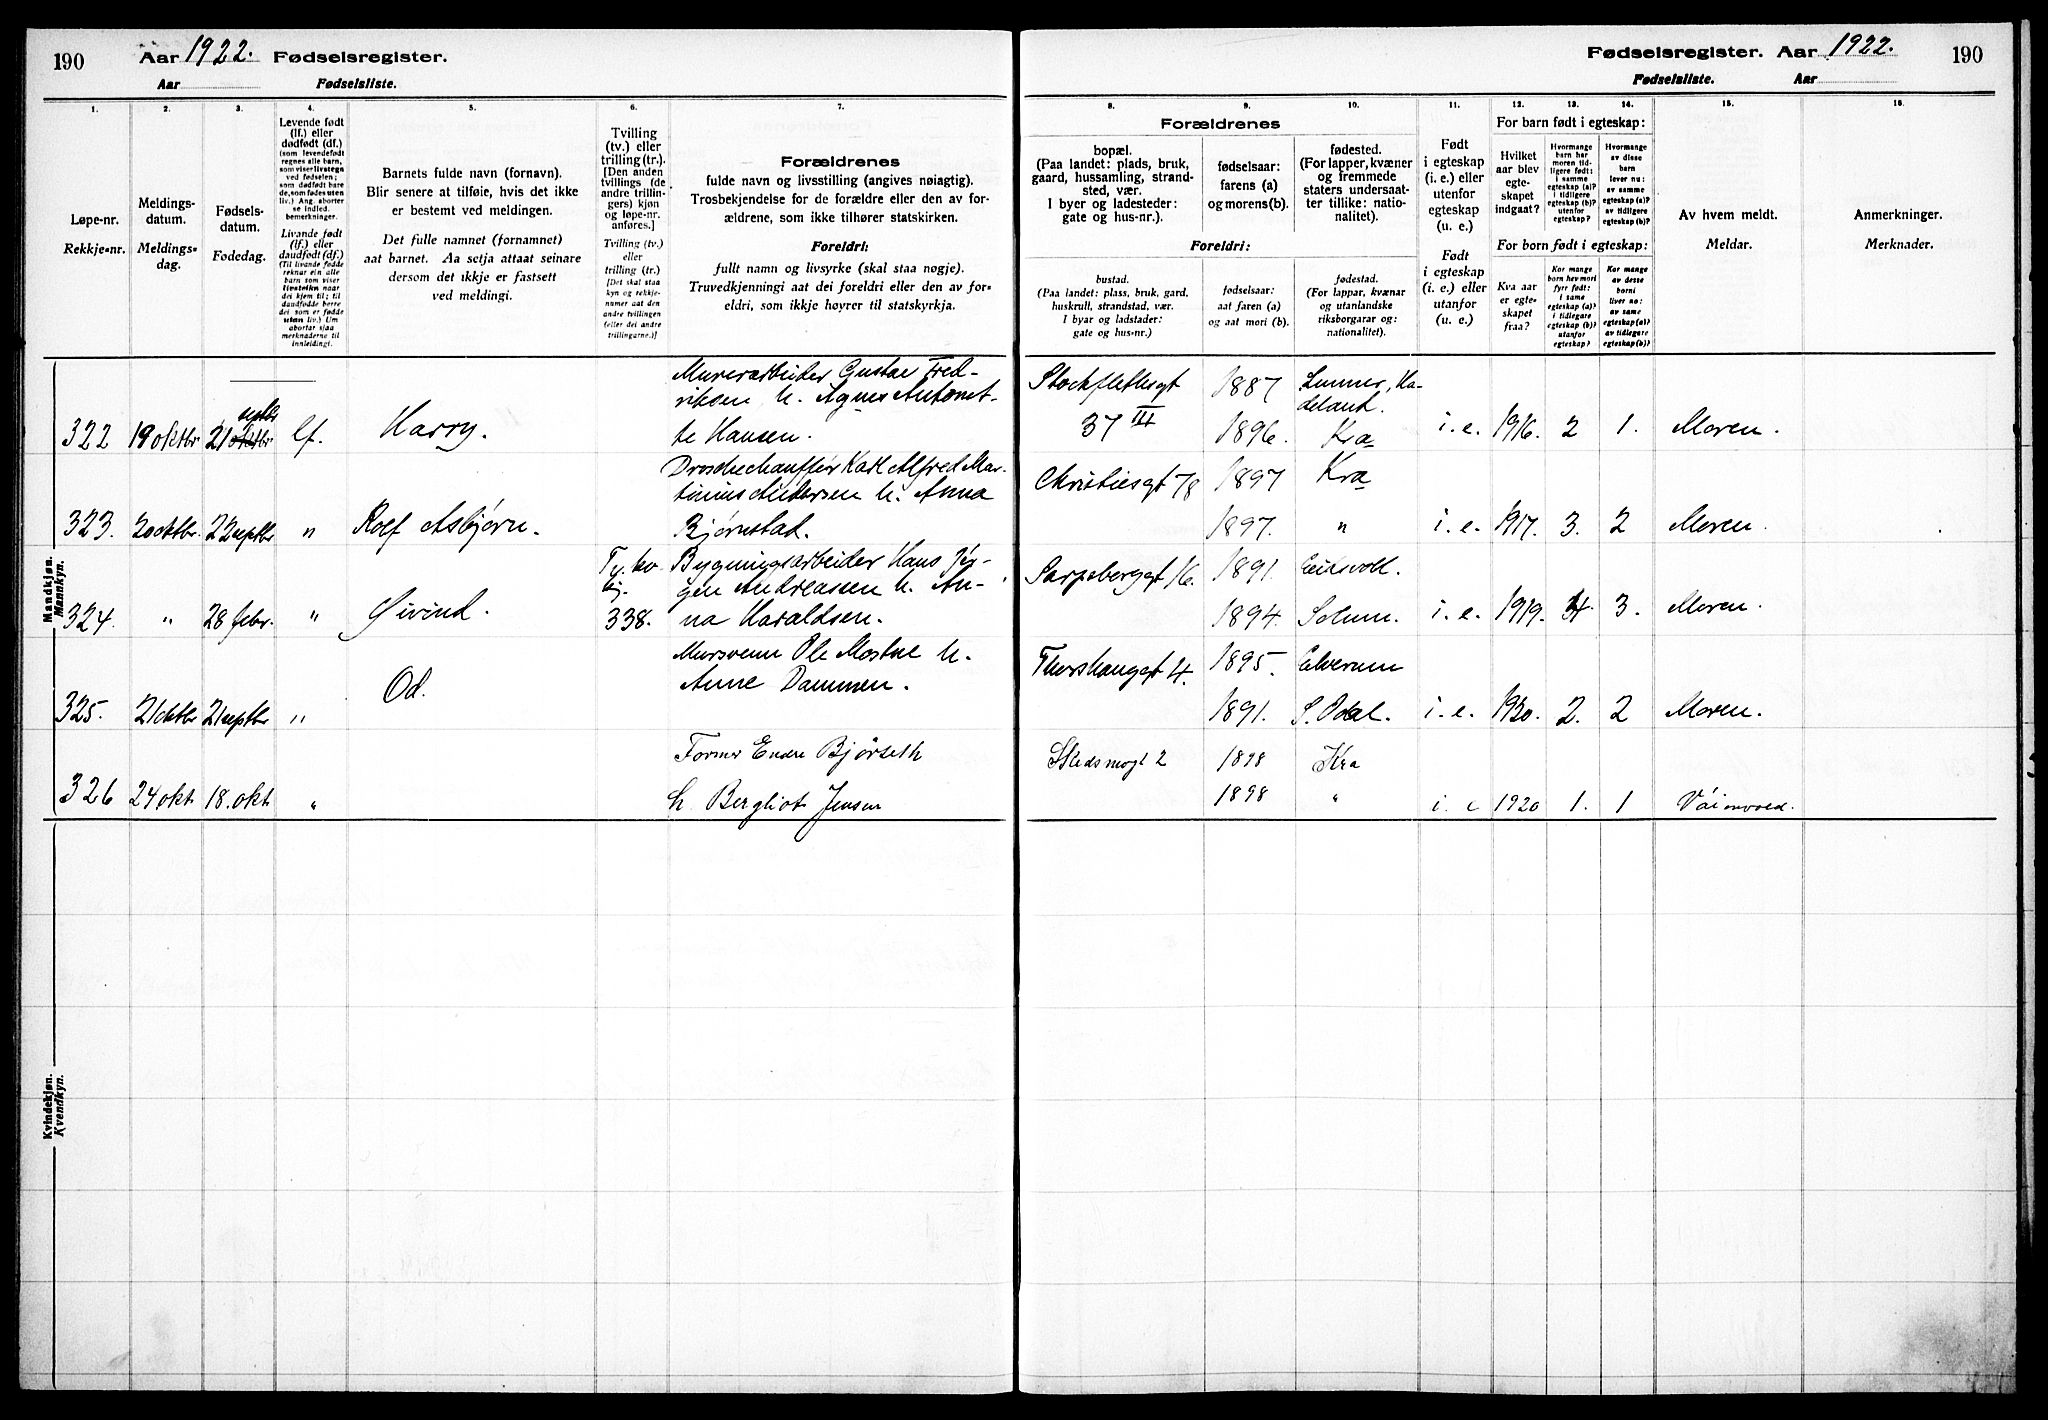 190 Aar 1922. Fødselsregister.
Aar Fødselsliste.
Fødselsregister. Aar 1922. 190
Fødselsliste. Aar
1. 2. 3. 4. 5. 6. 7.
Løpe-nr.
Rekkje-nr.
Meldings-
datum.
Meldings-
dag.
Fødsels-
datum.
Fødedag.
Levende født
(lf.) eller
dødfødt (df.)
(som levendefødt
regnes alle barn,
som viser livstegn
ved fødselen;
som dødfødt bare
de, som fødes uten
liv.) Ang. aborter
se indled.
bemerkninger.
Livande født
(lf.) eller
daudfødt (df.)
(Til livande fødde
reknar ein alle
barn som viser
livsteikn naar
dei kjem til; til
daudfødde berre
dei som er fødde
utan liv.) Um
abortar sjaa
merknaderne til
innleidingi.
Barnets fulde navn (fornavn).
Blir senere at tilføie, hvis det ikke
er bestemt ved meldingen.
Det fulle namnet (fornamnet)
aat barnet. Aa setja attaat seinare
dersom det ikkje er fastsett
ved meldingi.
Tvilling
(tv.) eller
trilling (tr.).
[Den anden
tvillings (de
andre trillin-
gers) kjøn
og løpe-nr.
anføres.]
Tvilling (tv.)
eller
trilling (tr.)
[Det skal staa
kyn og rekkje-
numer aat den
andre tvillingen
(eller dei andre
trillingarne.)]
Forældrenes
fulde navn og livsstilling (angives nøiagtig).
Trosbekjendelse for de forældre eller den av for-
ældrene, som ikke tilhører statskirken.
Foreldri:
fullt namn og livsyrke (skal staa nøgje).
Truvedkjenningi aat dei foreldri eller den av for-
eldri, som ikkje høyrer til statskyrkja.
8. 9. 10. 11. 12. 13. 14. 15. 16.
Forældrenes
bopæl.
(Paa landet: plads, bruk,
gaard, hussamling, strand-
sted, vær.
I byer og ladesteder:
gate og hus-nr.).
fødselsaar:
farens (a)
og morens (b).
fødested.
(For lapper, kvæner
og fremmede
staters undersaat-
ter tillike: natio-
nalitet).
Foreldri:
bustad.
(Paa landet: plass, bruk, gard,
huskrull, strandstad, vær.
I byar og ladstader:
gate og hus-nr.)
fødselsaar:
aat faren (a)
og aat mori (b).
fødestad.
(For lappar, kvænar
og utanlandske
riksborgarar og:
nationalitet).
Født
i egteskap
(i. e.) eller
utenfor
egteskap
(u. e.)
Født
i egteskap
(i. e.) eller
utanfor
(u. e.)
For barn født i egteskap:
Hvilket
aar blev
egte-
skapet
indgaat?
Hvormange
barn har
moren tid-
ligere født:
i samme
egteskap (a)?
i tidligere
egteskap (b)?
utenfor
egteskap?
Hvormange
av disse
barn
lever nu:
av samme
egteskap (a)?
av tidligere
egteskap (b)?
For born født i egteskap:
Kva aar
er egte-
skapet
fraa?
Kor mange
born hev mori
fyrr født:
i same
egteskap (a)?
i tidlegare
egteskap (b)?
utanfor
egteskap?
Kor mange
av desse
borni
liver no:
av same
egteskap (a)?
av tidlegare
egteskap (b)?
Av hvem meldt.
Meldar.
Anmerkninger.
Merknader.
Mandkjøn.
Mannkyn.
Kvindekjøn.
Kvendkyn.
Murerarbeider Gustav Fred-
riksen h. Agnes Antonet-
322 19 oktbr 21 oktbr septbr lf. Harry. te Hansen.
Stockflethsgt 1887 Lunner, Ha-
deland.
37 III 1896. Kra i. e. 1916. 2 1. Moren.
Droschechauffør Karl Alfred Mar-
tinius Andersen h. Anna
323. 20 oktbr. 22 septbr " Rolf Asbjørn. Bjørnstad.
Christiesgt 78 1897 Kra
1897. " i. e. 1917. 3. 2 Moren.
Bygningsarbeider Hans Jør-
gen Andreassen h. An-
324. " 28 febr. " Øivind. 338. na Haraldsen.
Sarpsborggt 16. 1891. Eidsvoll.
1894. Solum. i. e. 1919. 4 3. Moren.
Mursvenn Ole Mostue h.
Anne Dammen.
325. 21 oktbr 21 septbr " Od.
Thorshauggt 4. 1895. Elverum
1891. S. Odal. i. e. 1920. 2. 2 Moren.
Former Endre Bjørseth
326 24 okt 18. okt " h. Bergliot Jensen
Skedsmogt 2 1898 Kra
1898 " i. e 1920 1. 1